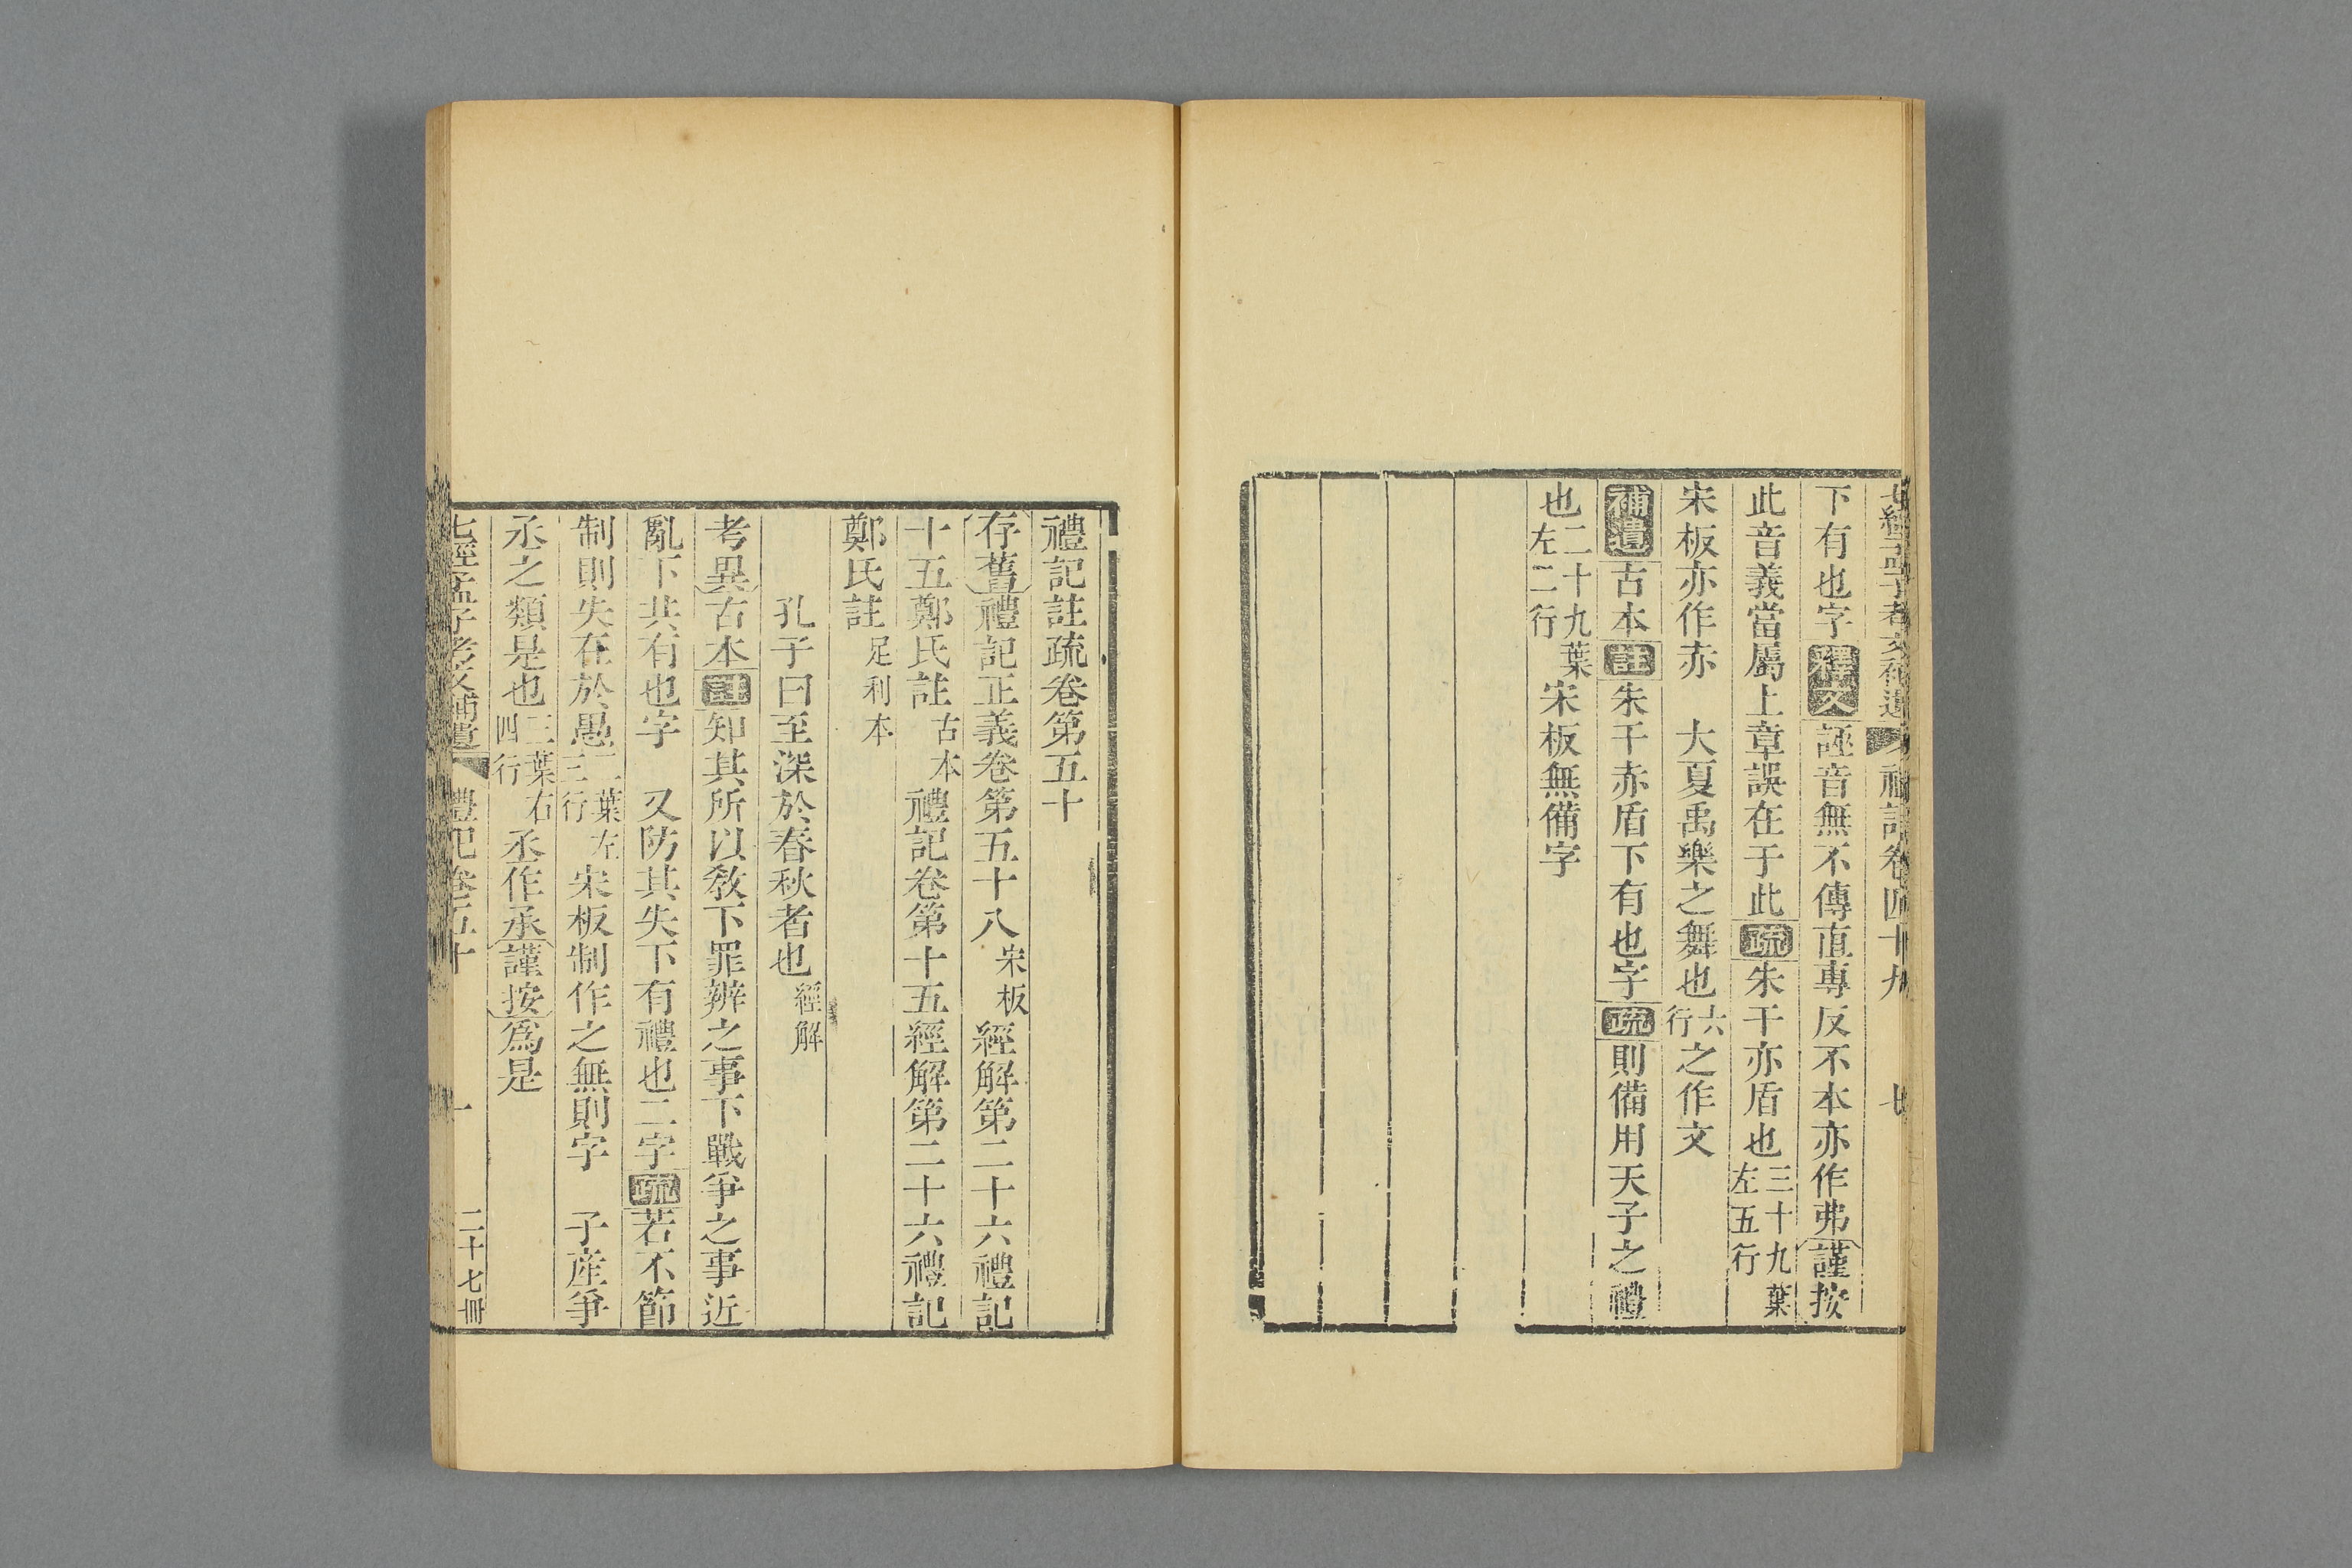 七經孟子考文補遺 禮記卷四十九 七
下有也字釋文誣音無不傳直專反不本亦作弗謹按
此音義當屬上章誤在于此疏朱干亦盾也三十九葉左五行
宋板亦作赤 大夏禹樂之舞也六行之作文
補遺古本註朱干赤盾下有也字疏則備用天子之禮
也二十九葉左二行宋板無備字
禮記註疏卷第五十
存舊禮記正義卷第五十八宋板經解第二十六禮記
十五鄭氏註古本禮記卷第十五經解第二十六禮記
鄭氏註足利本
孔子曰至深於春秋者也經解
考異古本註知其所以教下罪辨之事下戰爭之事近
亂下共有也字 又防其失下有禮也二字疏若不節
制則失在於愚二葉左三行宋板制作之無則字 子產爭
丞之類是也三葉右四行丞作承謹按爲是
七經孟子考文補遺 禮記卷五十 一 二十七冊